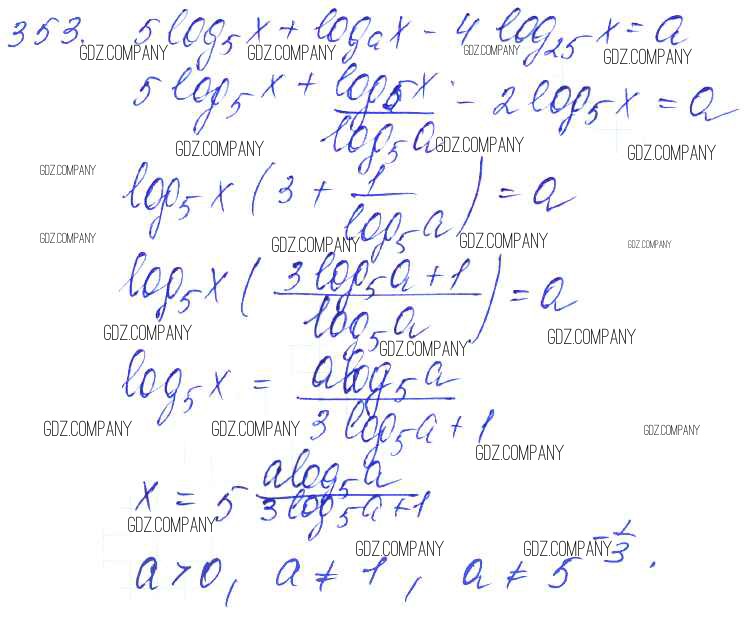 353. 5 log₅ x + logₐ x - 4 log₂₅ x = a
GDZ.COMPANY GDZ.COMPANY GDZ.COMPANY GDZ.COMPANY
5 log₅ x + log₅ x / log₅ a - 2 log₅ x = a
GDZ.COMPANY GDZ.COMPANY GDZ.COMPANY
GDZ.COMPANY
log₅ x (3 + 1 / log₅ a) = a
GDZ.COMPANY GDZ.COMPANY GDZ.COMPANY GDZ.COMPANY
log₅ x ((3 log₅ a + 1) / log₅ a) = a
GDZ.COMPANY GDZ.COMPANY GDZ.COMPANY
log₅ x = a log₅ a / (3 log₅ a + 1)
GDZ.COMPANY GDZ.COMPANY GDZ.COMPANY GDZ.COMPANY
x = 5^(a log₅ a / (3 log₅ a + 1))
GDZ.COMPANY
GDZ.COMPANY GDZ.COMPANY
a > 0, a ≠ 1, a ≠ 5^(-1/3).